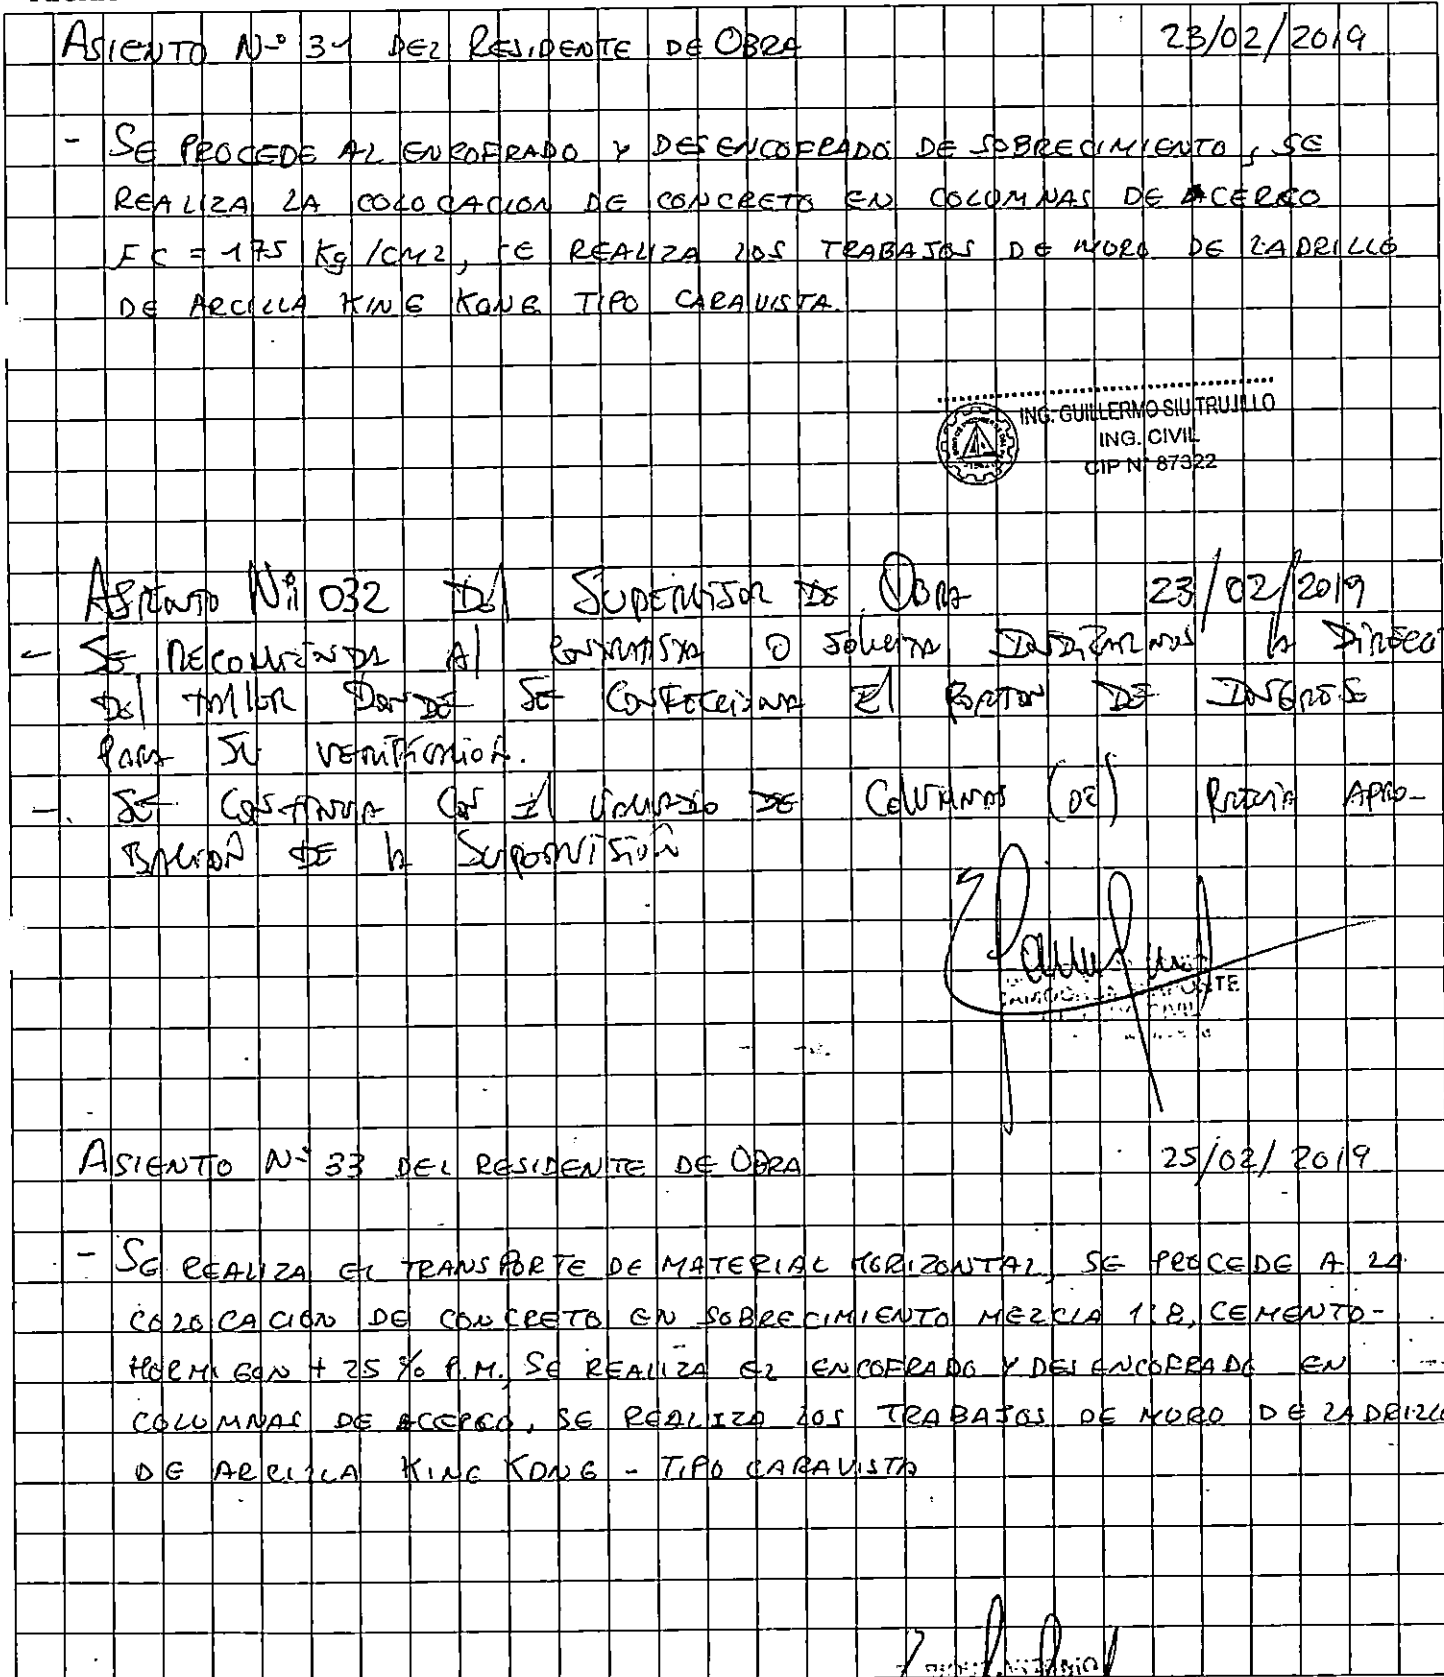 ASIENTO N-º 31 DEL RESIDENTE DE OBRA 23/02/2019
- SE PROCEDE AL ENCOFRADO Y DESENCOFRADO DE SOBRECIMIENTO, SE
REALIZA LA COLOCACION DE CONCRETO EN COLUMNAS DE ACERCO
FC = 175 Kg/CM2, SE REALIZA LOS TRABAJOS DE MURO DE LADRILLO
DE ARCILLA KING KONG TIPO CARAVISTA.
ING. GUILLERMO SIU TRUJILLO
ING. CIVIL
CIP N° 87322
ASIENTO Nº 032 Del SUPERVISOR DE OBRA 23/02/2019
- SE RECOMIENDA Al CONTRATISTA O solicita la DIRECC
Del TALLER DONDE SE CONFECCIONA El PORTON DE INGRESO
PARA SU VERIFICACION.
-. SE CONTINUA CON El VACIADO DE COLUMNAS (02) PREVIA APRO-
BACION DE la SUPERVISIÓN
ASIENTO N-º 33 DEL RESIDENTE DE OBRA 25/02/2019
- SE REALIZA EL TRANSPORTE DE MATERIAL HORIZONTAL, SE PROCEDE A LA
COLOCACION DE CONCRETO EN SOBRECIMIENTO MEZCLA 1:8, CEMENTO-
HORMIGON + 25 % P.M. SE REALIZA EL ENCOFRADO Y DESENCOFRADO EN
COLUMNAS DE ACERCO, SE REALIZA LOS TRABAJOS DE MURO DE LADRILLO
DE ARCILLA KING KONG - TIPO CARAVISTA